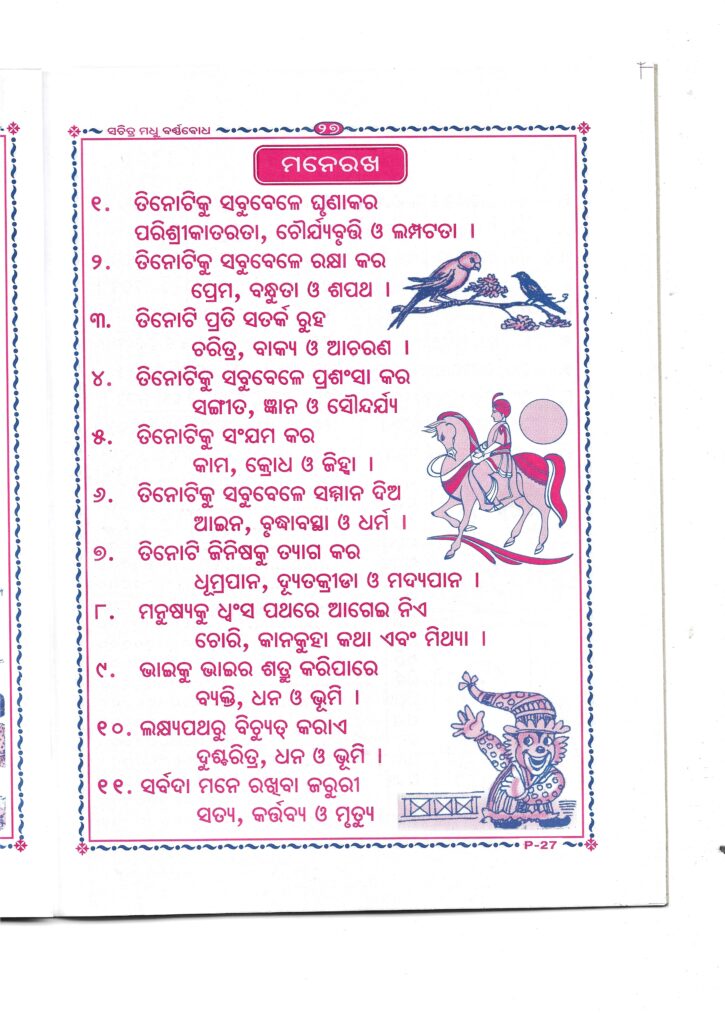 ସଚିତ୍ର ମଧୁ ବର୍ଣ୍ଣବୋଧ
୨୭
ମନେରଖ
୧. ତିନୋଟିକୁ ସବୁବେଳେ ଘୃଣାକର
ପରିଶ୍ରୀକାତରତା, ଚୌର୍ଯ୍ୟବୃତ୍ତି ଓ ଲମ୍ପଟତା ।
୨. ତିନୋଟିକୁ ସବୁବେଳେ ରକ୍ଷା କର
ପ୍ରେମ, ବନ୍ଧୁତା ଓ ଶପଥ ।
୩. ତିନୋଟି ପ୍ରତି ସତର୍କ ରୁହ
ଚରିତ୍ର, ବାକ୍ୟ ଓ ଆଚରଣ ।
୪. ତିନୋଟିକୁ ସବୁବେଳେ ପ୍ରଶଂସା କର
ସଙ୍ଗୀତ, ଜ୍ଞାନ ଓ ସୌନ୍ଦର୍ଯ୍ୟ
୫. ତିନୋଟିକୁ ସଂଯମ କର
କାମ, କ୍ରୋଧ ଓ ଜିହ୍ଵା ।
୬. ତିନୋଟିକୁ ସବୁବେଳେ ସମ୍ମାନ ଦିଅ
ଆଇନ, ବୃଦ୍ଧାବସ୍ଥା ଓ ଧର୍ମ ।
୭. ତିନୋଟି ଜିନିଷକୁ ତ୍ୟାଗ କର
ଧୂମ୍ରପାନ, ଦ୍ୟୂତକ୍ରୀଡା ଓ ମଦ୍ୟପାନ ।
୮. ମନୁଷ୍ୟକୁ ଧ୍ୱଂସ ପଥରେ ଆଗେଇ ନିଏ
ଚୋରି, କାନକୁହା କଥା ଏବଂ ମିଥ୍ୟା ।
୯. ଭାଇକୁ ଭାଇର ଶତ୍ରୁ କରିପାରେ
ବ୍ୟକ୍ତି, ଧନ ଓ ଭୂମି ।
୧୦. ଲକ୍ଷ୍ୟପଥରୁ ବିଚ୍ୟୁତ୍ କରାଏ
ଦୁଶ୍ଚରିତ୍ର, ଧନ ଓ ଭୂମି ।
୧୧. ସର୍ବଦା ମନେ ରଖିବା ଜରୁରୀ
ସତ୍ୟ, କର୍ତ୍ତବ୍ୟ ଓ ମୃତ୍ୟୁ
P-27